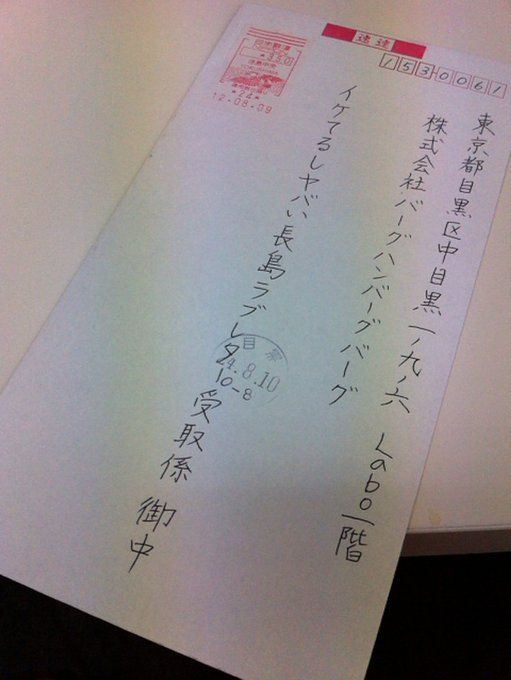 速達
1530061
東京都目黒区中目黒一ノ九ノ六 Labo一階
株式会社バーグハンバーグバーグ
イケてるしヤバい長島ラブレター受取係 御中
日本郵便
350
12.08.09
目黒
24.8.10
10-8